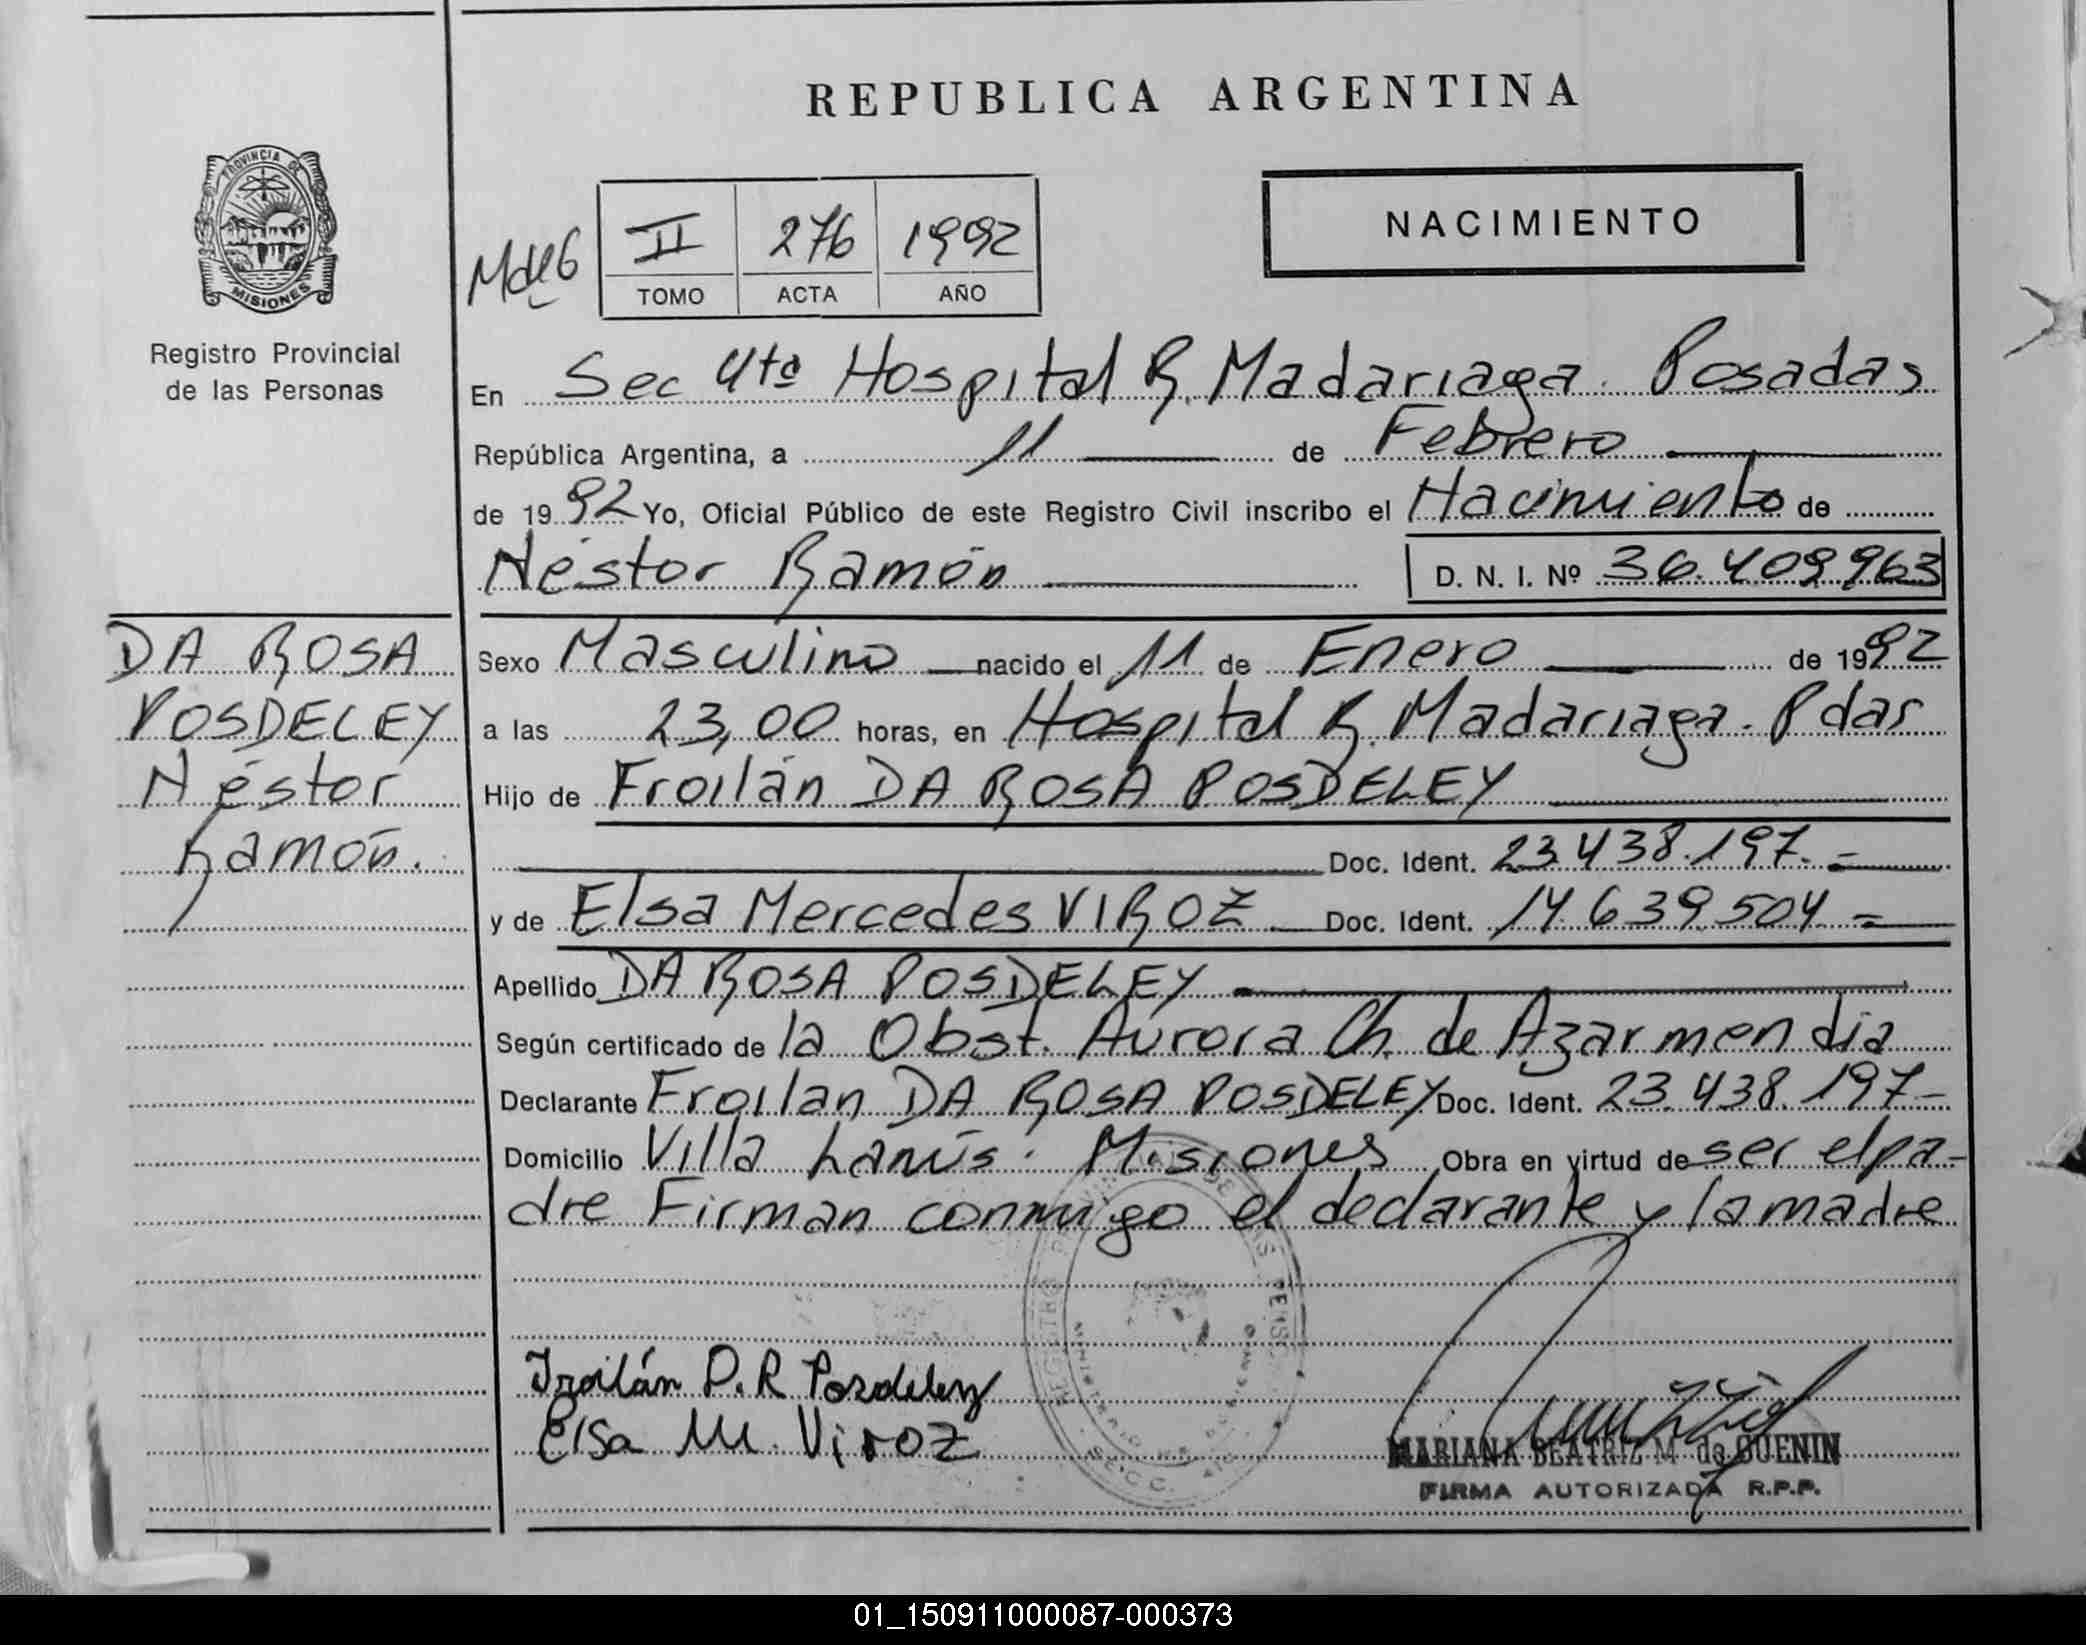 REPUBLICA ARGENTINA
PROVINCIA DE
MISIONES
Registro Provincial
de las Personas
NACIMIENTO
II 276 1992
TOMO ACTA AÑO
En Sec 4ta Hospital R. Madariaga. Posadas
República Argentina, a 11 de Febrero
de 1992 Yo, Oficial Público de este Registro Civil inscribo el Nacimiento de
Néstor Ramón D. N. I. Nº 36.409963
DA ROSA
POSDELEY
Néstor
Ramón.
Sexo Masculino nacido el 11 de Enero de 1992
a las 23,00 horas, en Hospital R. Madariaga. Pdas
Hijo de Froilán DA ROSA POSDELEY
Doc. Ident. 23.438.197.=
y de Elsa Mercedes VIROZ Doc. Ident. 14.639.504=
Apellido DA ROSA POSDELEY
Según certificado de la Obst. Aurora Ch. de Azarmendia
Declarante Froilan DA ROSA POSDELEY Doc. Ident. 23.438.197-
Domicilio Villa Lanús. Misiones Obra en virtud de ser el pa-
dre Firman conmigo el declarante y la madre
Froilán D.R Posdeley
Elsa M. Viroz
MARIANA BEATRIZ M de GUENIN
FIRMA AUTORIZADA R.P.P.
01_150911000087-000373